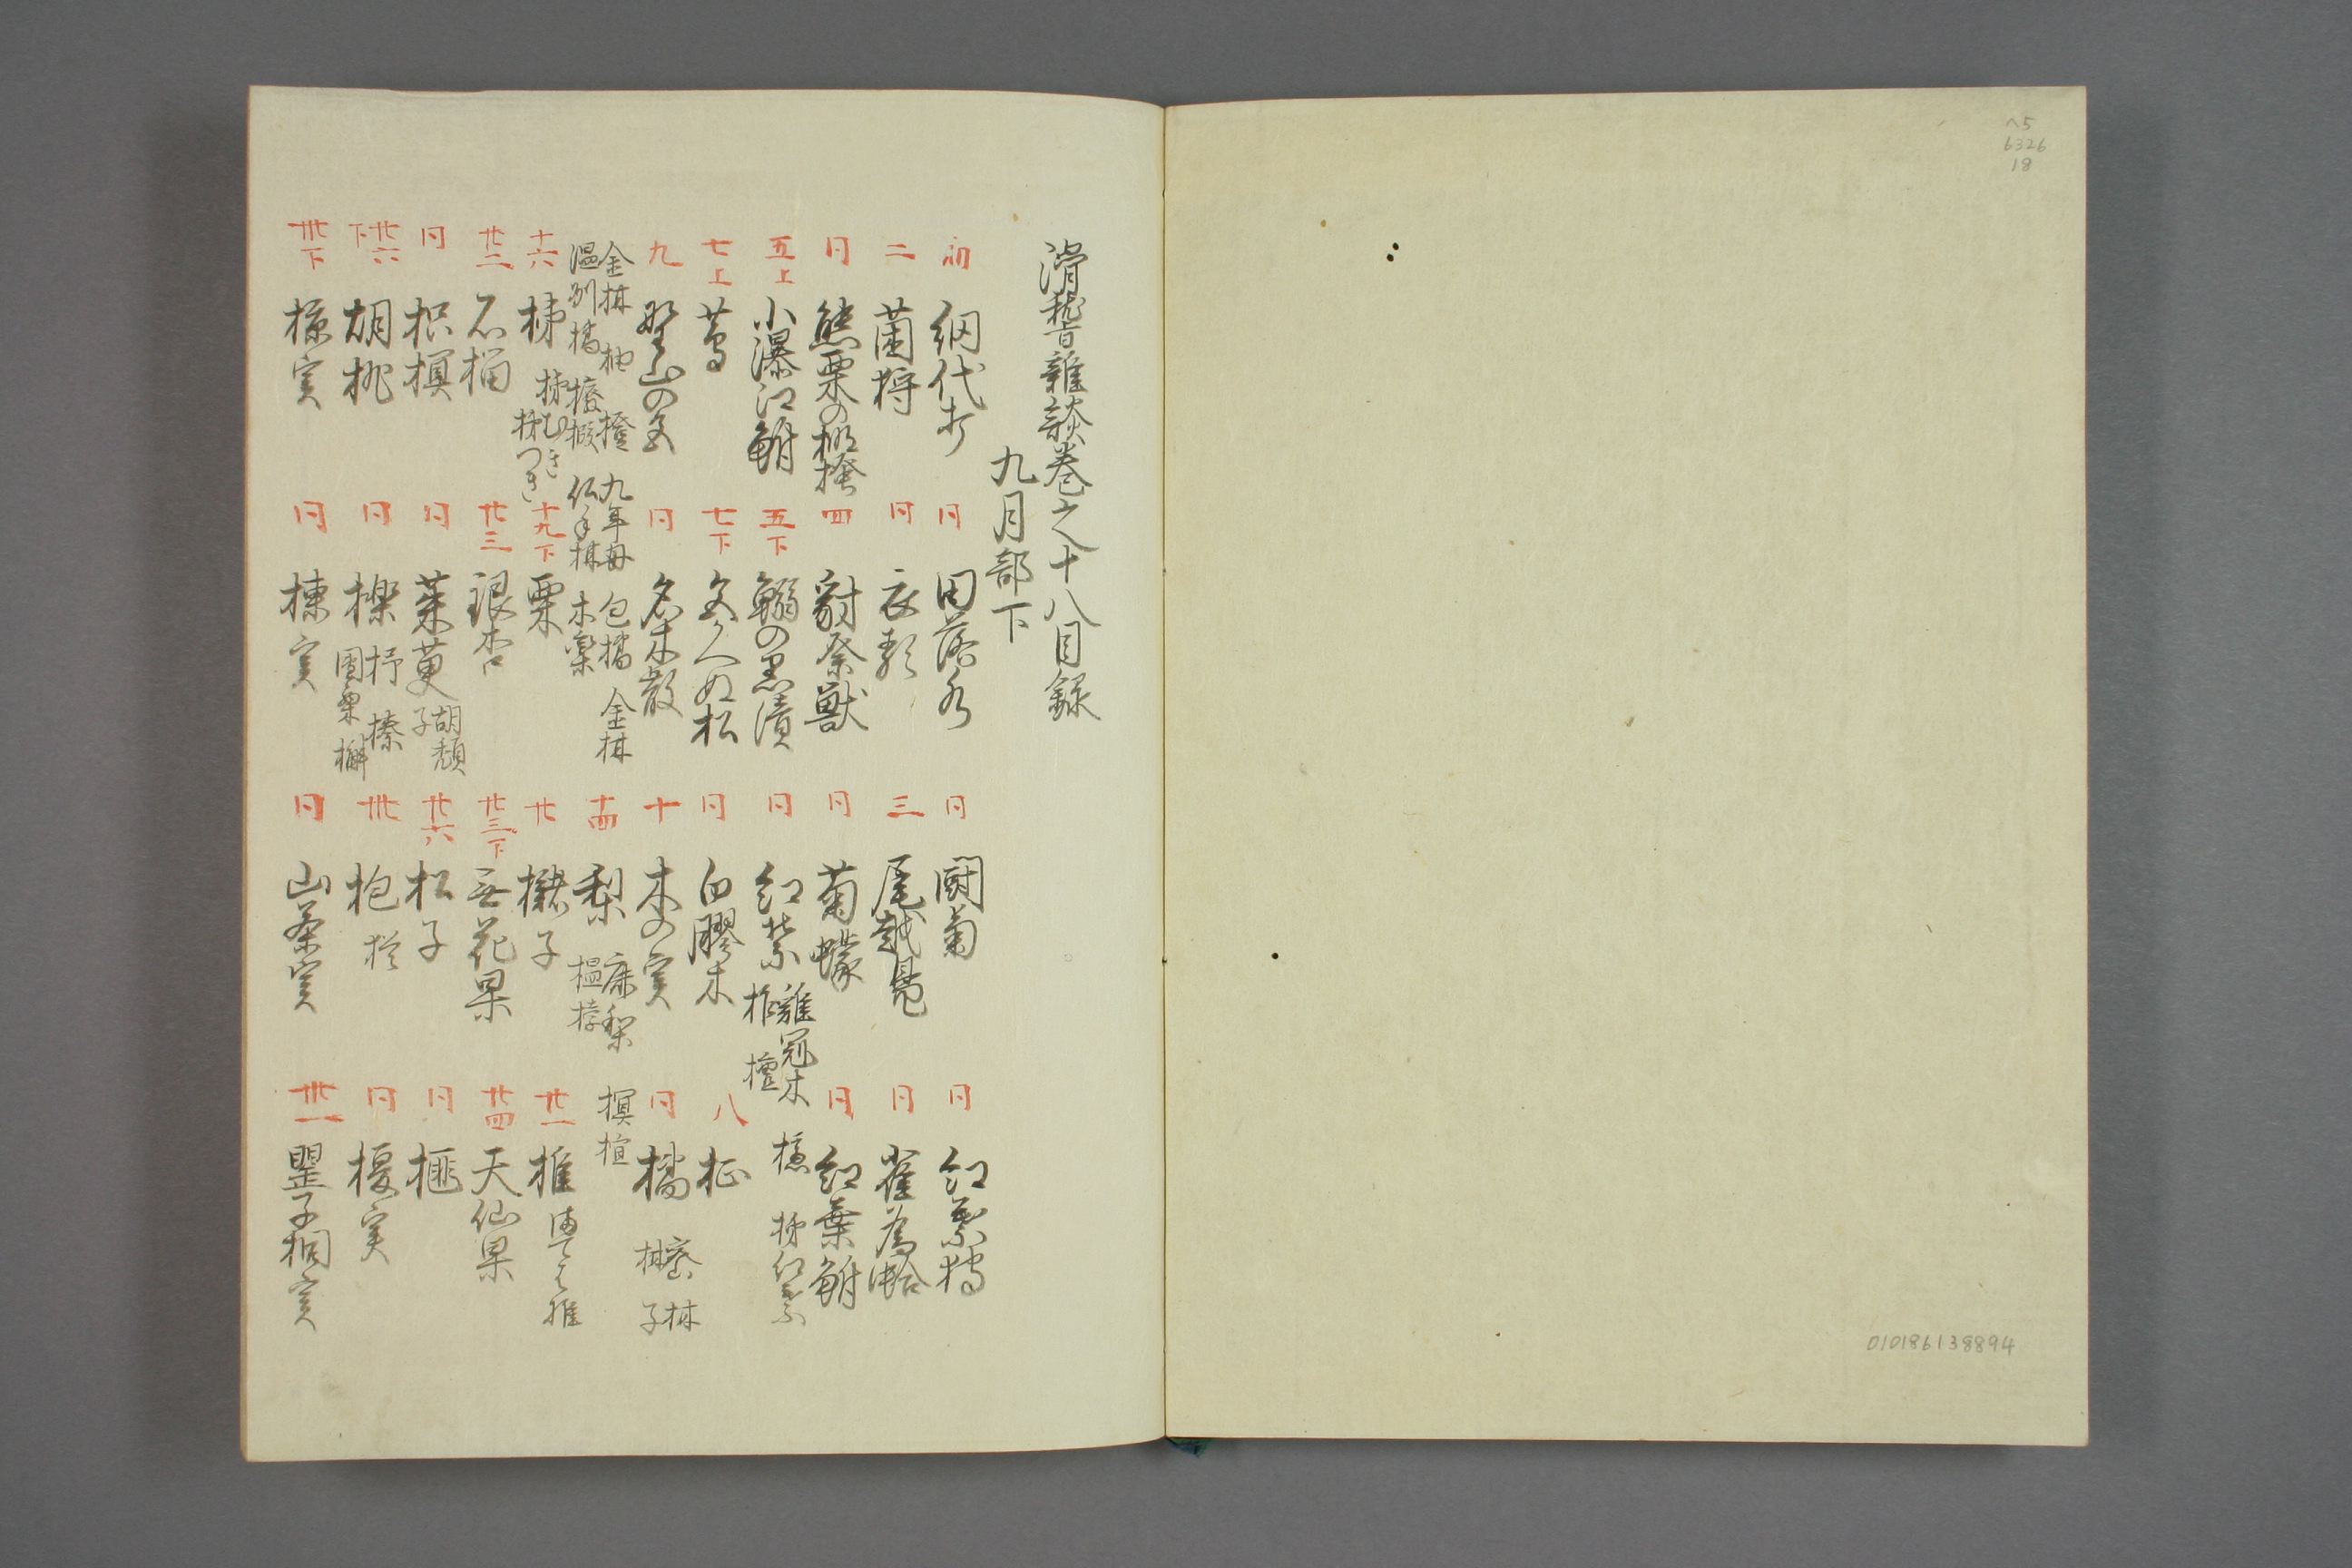 ヘ5
6326
18
010186138894
滑稽雑談巻之十八目録
九月部下
初 網代打
同 田落水
同 闘菊
同 紅葉狩
二 菌狩
同 衣
三 尾越鳧
同 雀為蛤
同 熊栗の棚
四 豺祭獣
同 菊蠓
同 紅葉鮒
五上 小瀑江鮒
五下 鰯の黒漬
同 紅葉 雞冠木 柞 檀 櫨 柿紅葉
七上 蔦
七下 色かへぬ松
同 白膠木
八 柾
九 野山の色
同 名木散
十 木の実
同 橘 蜜柑 柑子
金柑 柚 橙 九年母 包橘 金柑
温州橘 榠樝
仏手柑 木欒
十四 梨 鹿梨 榲桲
十六 柿 柿むき 柿つき
十九下 栗
廿 櫧子
廿一 椎 椎
廿二 石榴
廿三 銀杏
廿三下 無花果
廿四 天仙果
同 枳椇
同 茱萸 胡頽子
廿六 松子
同 榧
廿六下 胡桃
同 櫟 杼 榛 団栗 槲
卅 枹
同 榎実
卅下 椋実
同 楝実
同 山茶実
卅一 罌子桐実